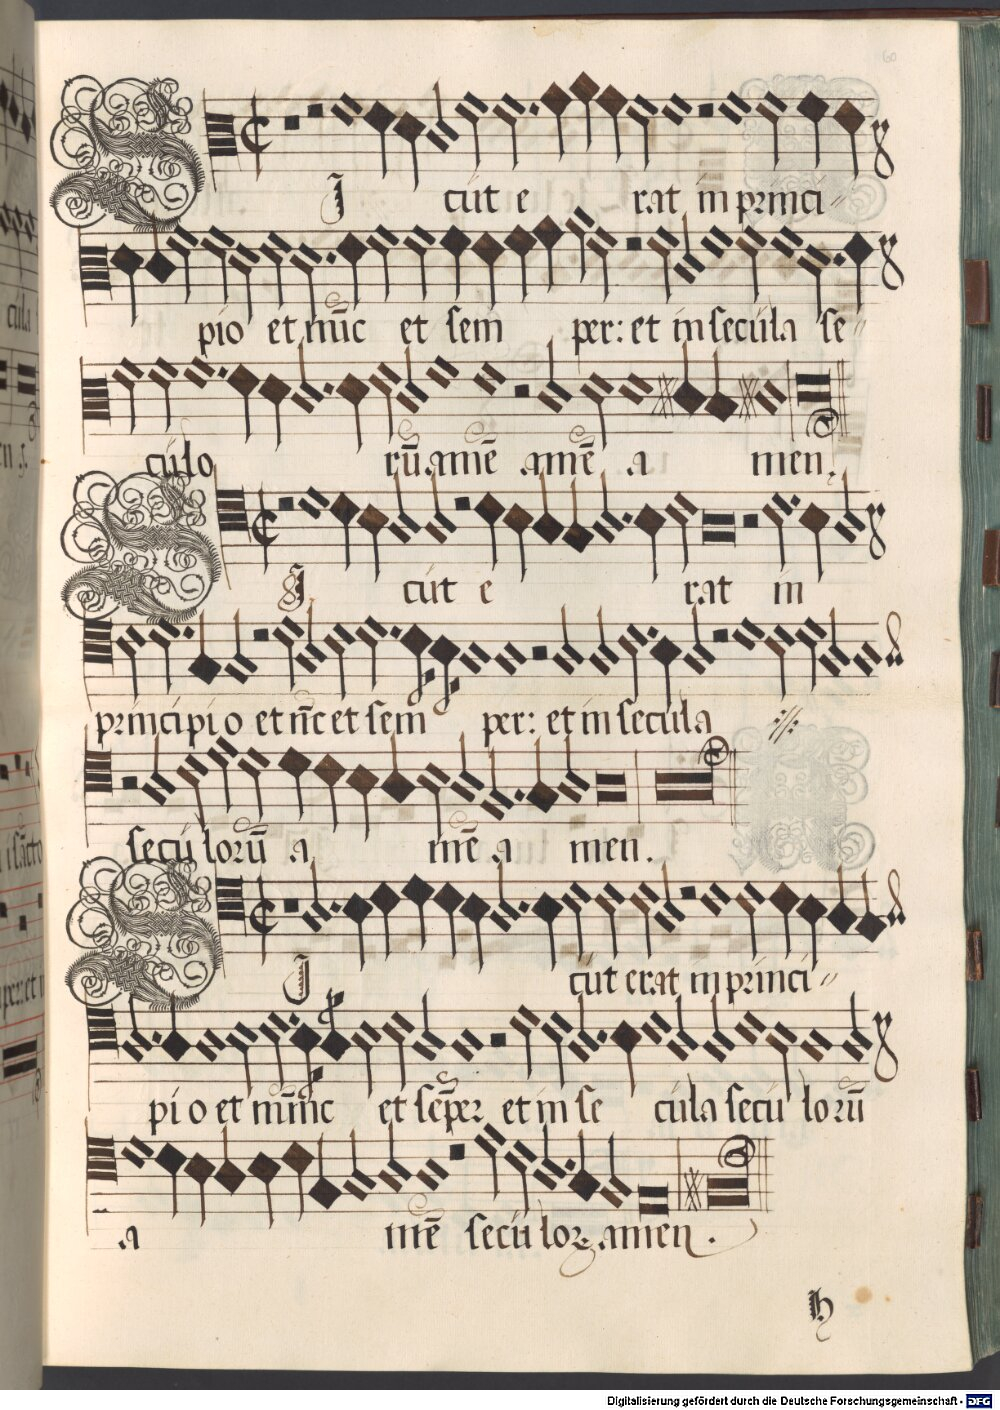 60
S I cut e rat in princi
pio et nūc et sem per: et in secula se
culo rū amē amē a men.
S I cut e rat in
principio et nc̄ et sem per: et in secula ://:
secu lorū a mē a men.
S I cut erat in princi
pi o et nūnc et sēper et in se cula secu lorū
a mē secu lorꝝ amen.
h
Digitalisierung gefördert durch die Deutsche Forschungsgemeinschaft - DFG